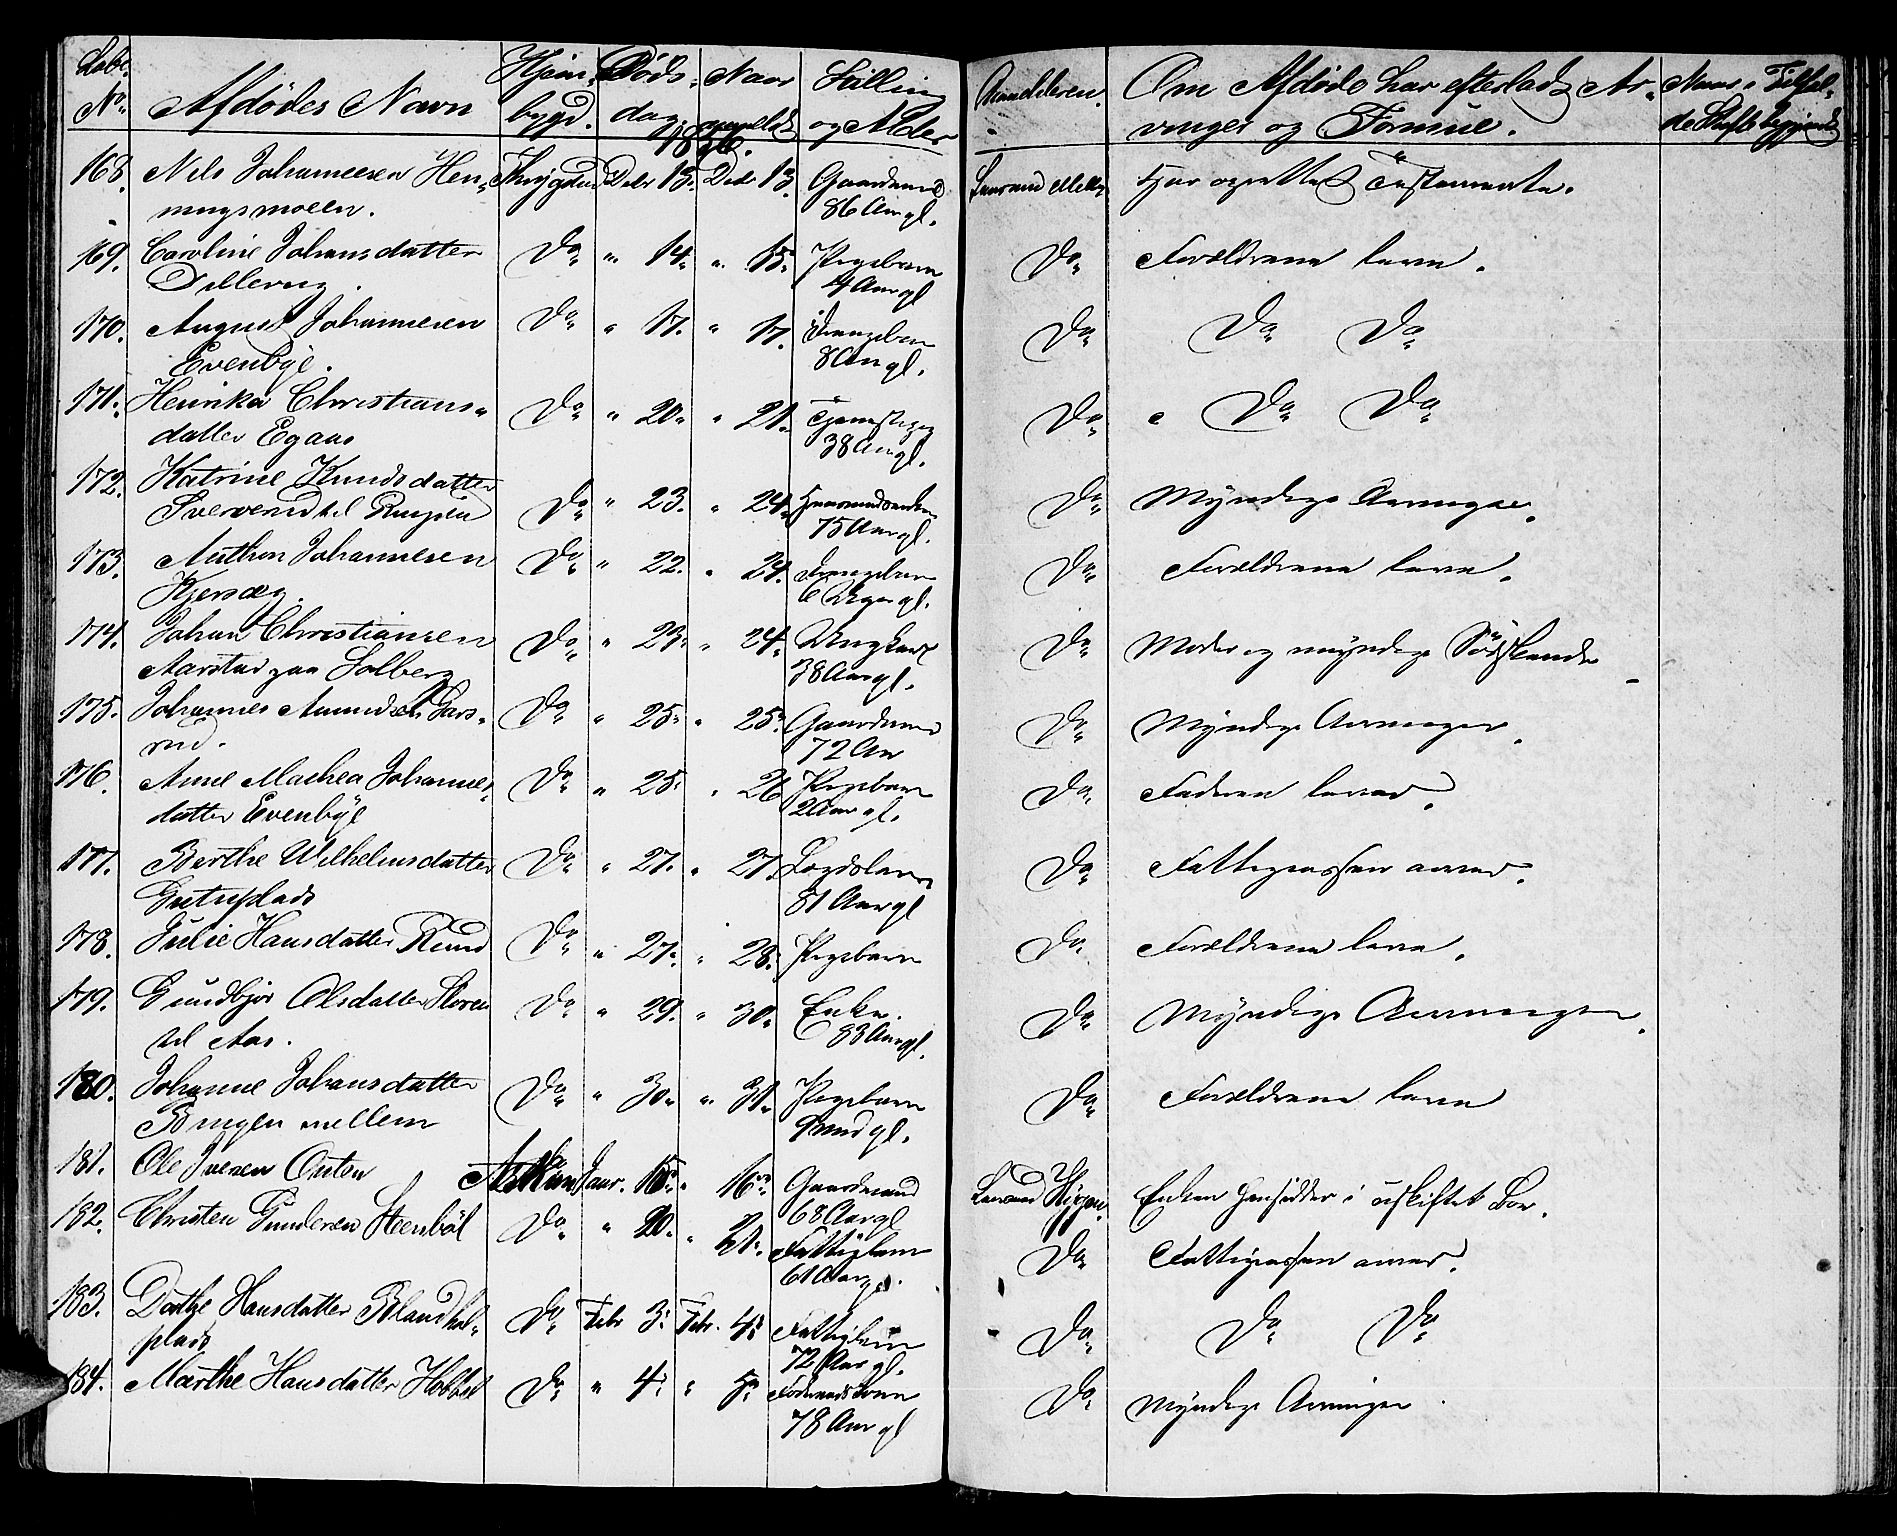 Løbe No. Afdødes Navn Hjembygd. Dødsdag. Naar anmeldt Stilling og Alder Anmelderen. Om Afdøde har efterladt Arvinger og Formue. Naar i Tilfælde Skifte begyndt
168. Nils Johannesen Henningsmoen. Trygstad Decbr 13. Decbr 13. Gaardmand 86 Aar gl. Lensmand Har oprettet Testamente.
169. Caroline Johansdatter Dillerug. Do " 14. " 15. Pigebarn 4 Aar gl Do Forældrene leve.
170. August Johannesen Evenbye. Do " 17. " 17. Drengebarn 8 Aar gl. Do Do Do
171. Henrika Christiansdatter Egaas Do " 20. " 21. Tjenestepige 38 Aar gl. Do Do Do
172. Katrine Knudsdatter til Do " 23. " 24. 75 Aar gl. Do Myndige Arvinger.
173. Anthon Johannesen Do " 22. " 24. Drengebarn 6 Uger gl. Do Forældrene leve.
174. Johan Christiansen Aarstad paa Solberg Do " 23. " 24. Ungkarl 38 Aar gl. Do Moder og myndige Sødskende
175. Johannes Amundsen Garsrud. Do " 25. " 25. Gaardmand 72 Aar Do Myndige Arvinger.
176. Anne Mathea Johannesdatter Evenbye Do " 25. " 26 Pigebarn 2 Aar gl. Do Faderen lever.
177. Berthe Wilhelmsdatter Do " 27. " 27. Lægdslem 81 Aar gl Do Fattigcassen arver.
178. Julie Hansdatter Ruud Do " 27. " 28. Pigebarn Do Forældrene leve.
179. Gundbjør Olsdatter til Aas. Do " 29. " 30. Enke. 83 Aar gl. Do Myndige Arvinger.
180. Johanne Johansdatter mellem Do " 30. " 31. Pigebarn gl. Do Forældrene leve
181. Ole Iversen Askim Januar. 15. " 16. Gaardmand 68 Aar gl Lensmand Enken hensidder i uskiftet Bo.
182. Christen Gundersen Steenbøl Do " 20. " 21. Fattiglem 61 Aar gl. Do Fattigcassen arver.
183. Dorthe Hansdatter plads Do Febr 3. Febr. 4. Fattiglem 72 Aar gl. Do Do Do
184. Marthe Hansdatter Do " 4. " 5. 78 Aar gl Do Myndige Arvinger